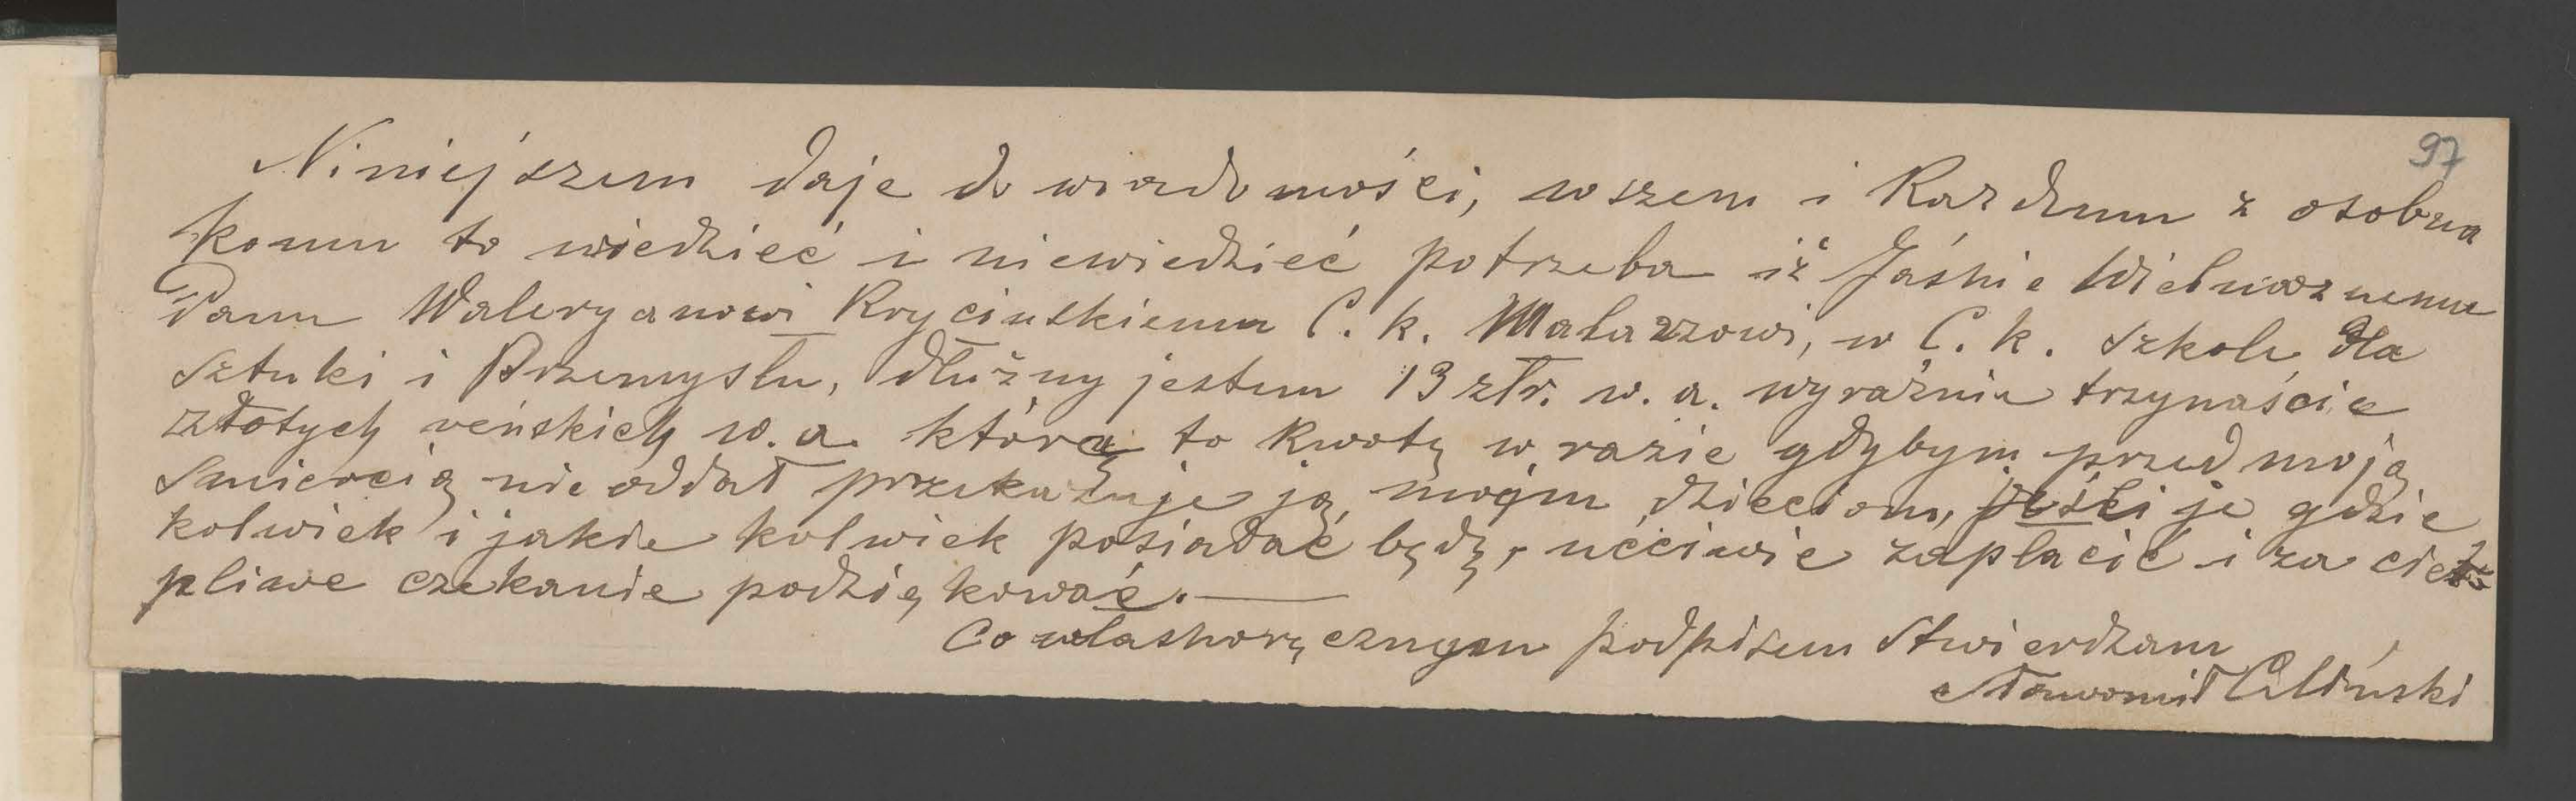 97
Niniejszem daje do wiadomości, wszem i Każdemu z osobna
komu to wiedzieć i niewiedzieć potrzeba iż Jaśnie Wielmożnemu
Panu Waleryanowi Krycinskiemu C. k. Malarzowi, w C. k. Szkole dla
Sztuki i Przemysłu, dłużny jestem 13 złr. w. a. wyraźnie trzynaście
złotych reńskich w. a. którą to Kwotę w razie gdybym przed moją
Smiercią nie oddał przekazuje ją moim dzieciom, jeśli je gdzie
kolwiek i jakie kolwiek posiadać będę, ućciwie zapłacić i za cier
pliwe czekanie podziękować. —
Co własnoręcznym podpisem Stwierdzam
Sławomił Celiński